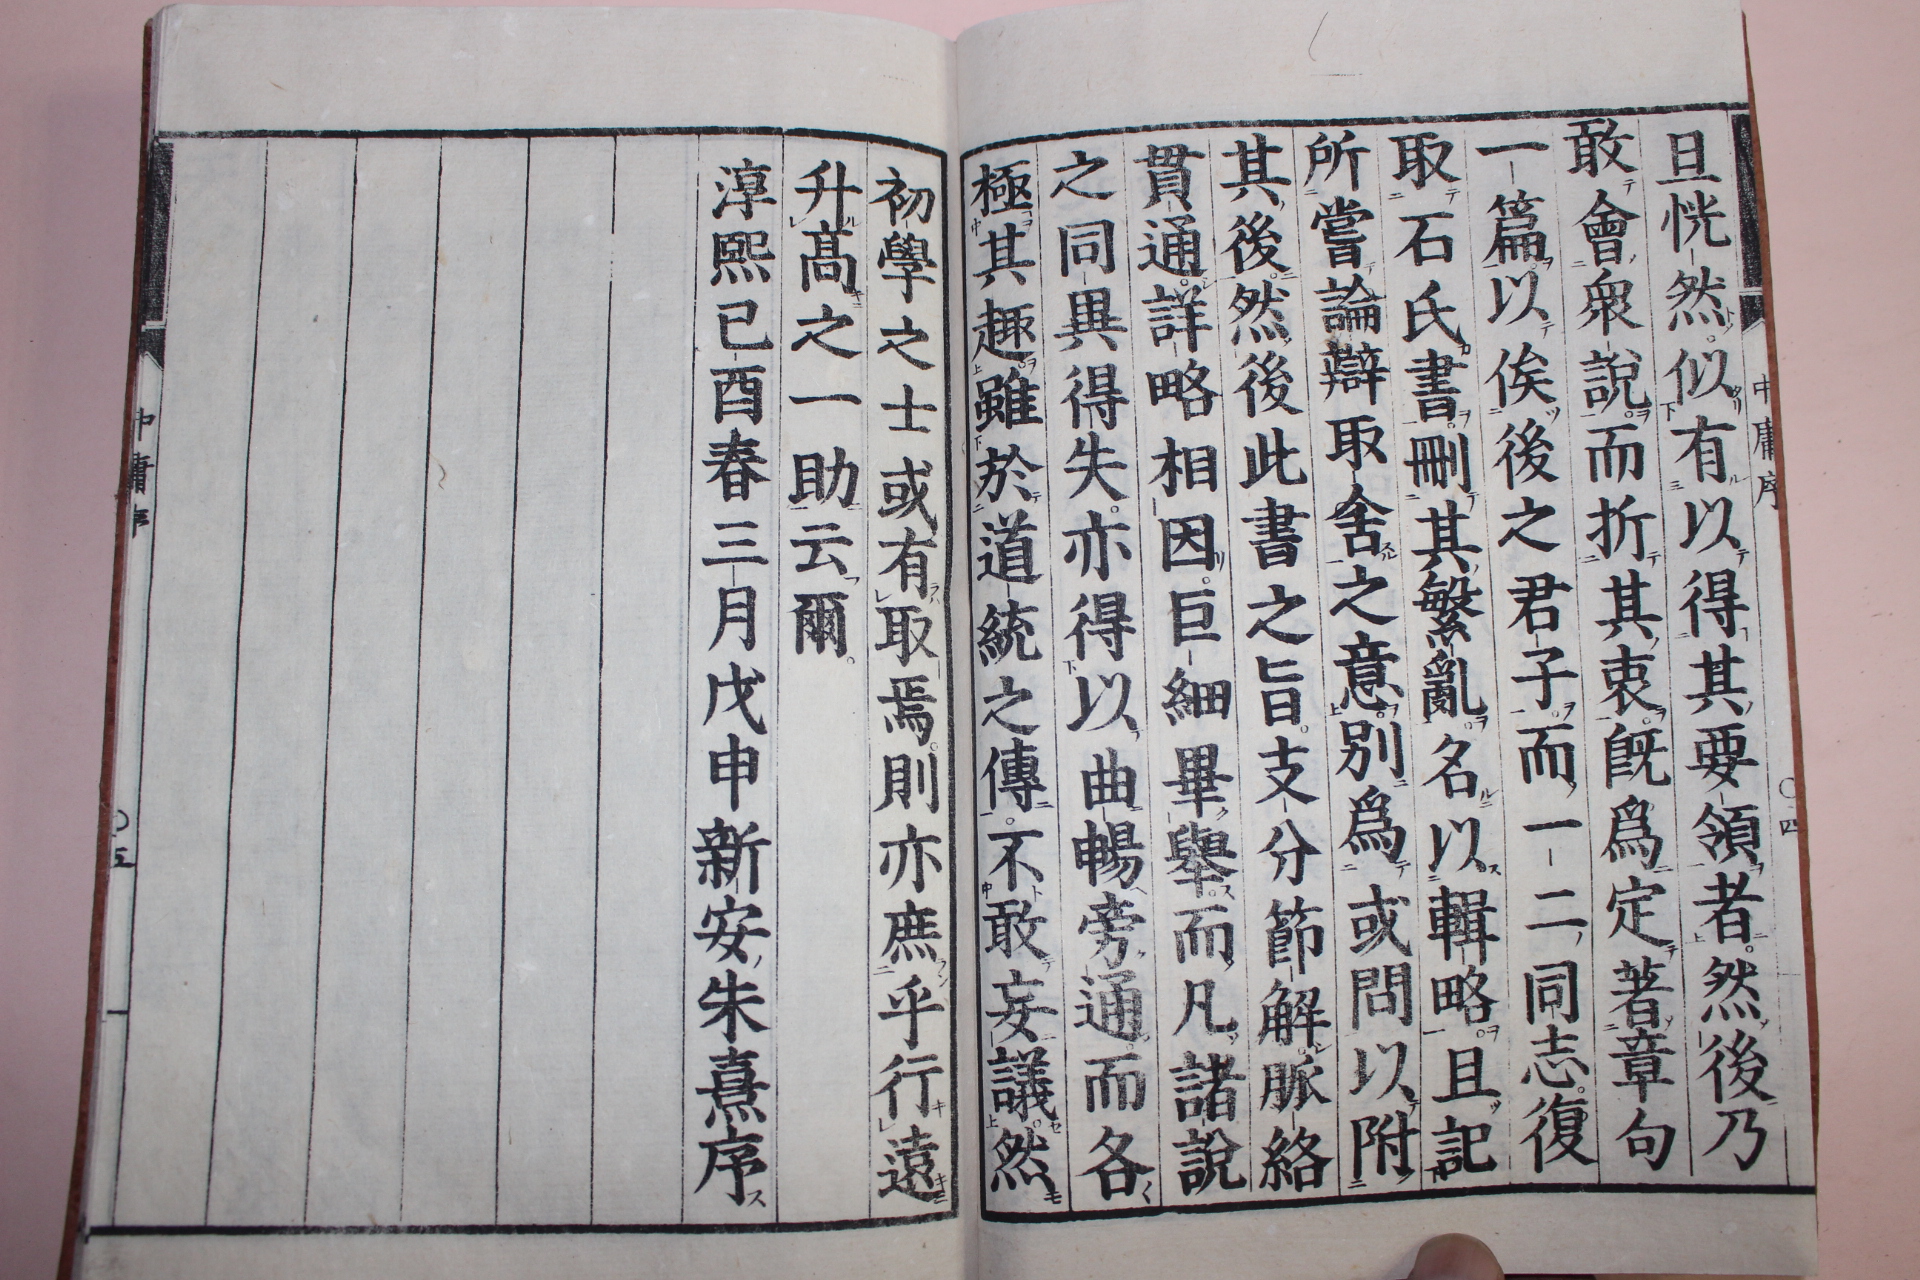 旦恍然似有以得其要領者然後乃
敢會衆說而折其衷旣爲定著章句
一篇以俟後之君子而一二同志復
取石氏書刪其繁亂名以輯略且記
所嘗論辯取舍之意別爲或問以附
其後然後此書之旨支分節解脈絡
貫通詳略相因巨細畢擧而凡諸說
之同異得失亦得以曲暢旁通而各
極其趣雖於道統之傳不敢妄議然
中庸序
○四
初學之士或有取焉則亦庶乎行遠
升髙之一助云爾
淳熙己酉春三月戊申新安朱熹序
中庸序
○五